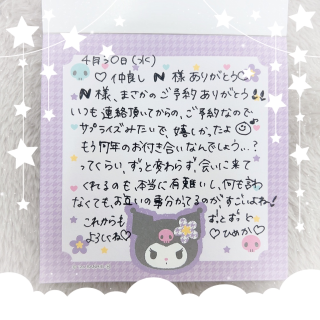 4月30日(水)
♡仲良し N 様 ありがとう♡
N 様、まさかのご予約ありがとう!!
いつも連絡頂いてからの、ご予約なので
サプライズみたいで、嬉しかったよ
もう何年のお付き合いなんでしょう…?
ってくらい、ずっと変わらず、会いに来て
くれるのも、本当に有難いし、何も言わ
なくても、お互いの事分かってるのが、すごいよね!
これからも ずっとずっと
よろしくね♡ ♡ひめか♡